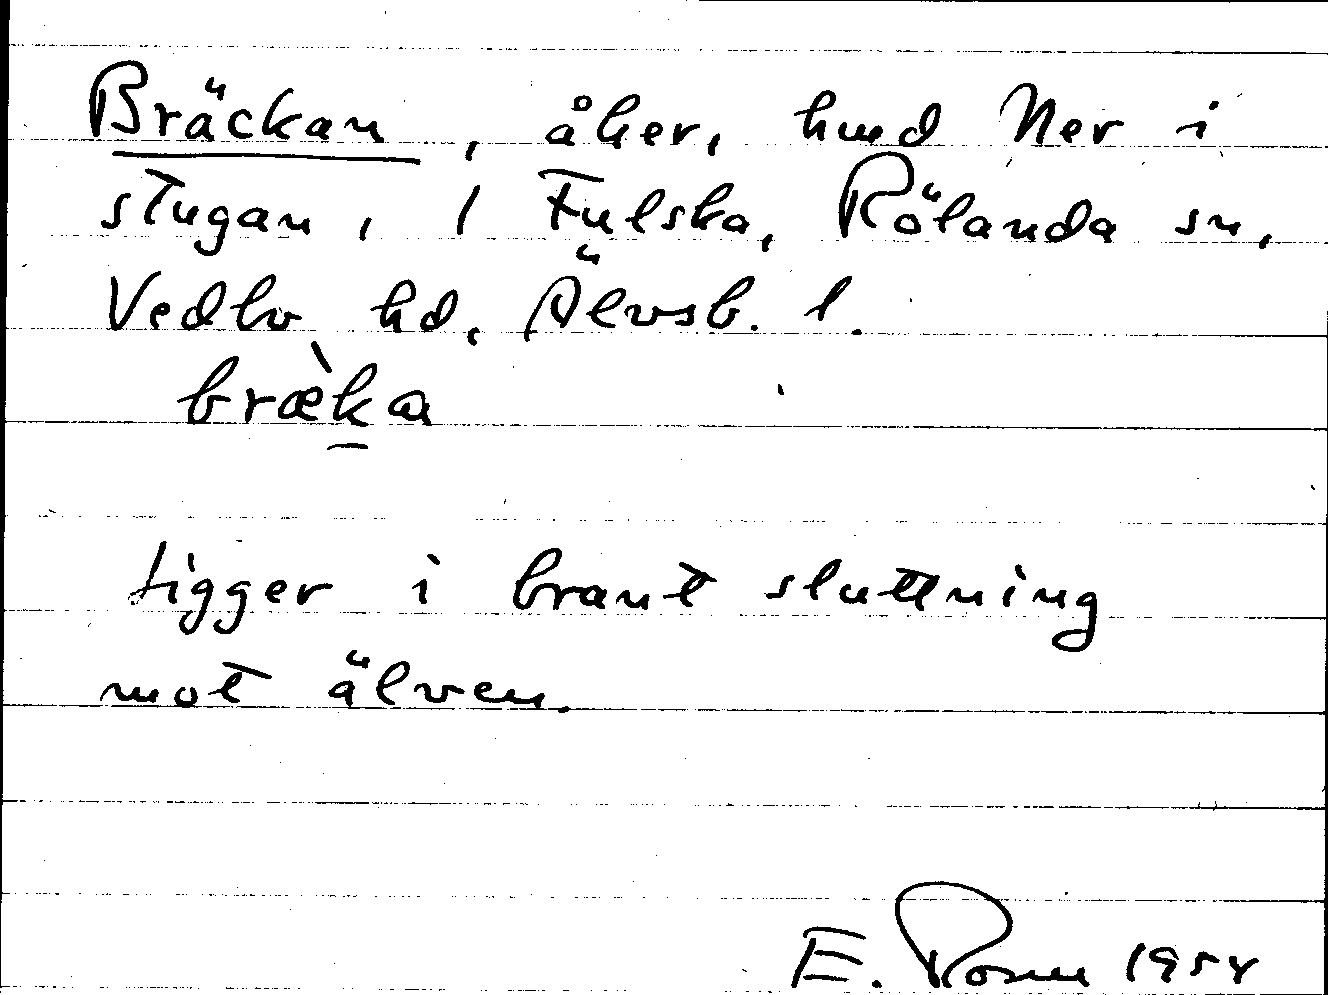 Bräckan, åker, hmd Ner i
stugan, 1 Fulska, Rölanda sn,
Vedbo hd. Älvsb. l.
bræ̀ka
Ligger i brant sluttning
mot älven.
E. Rosén 1954